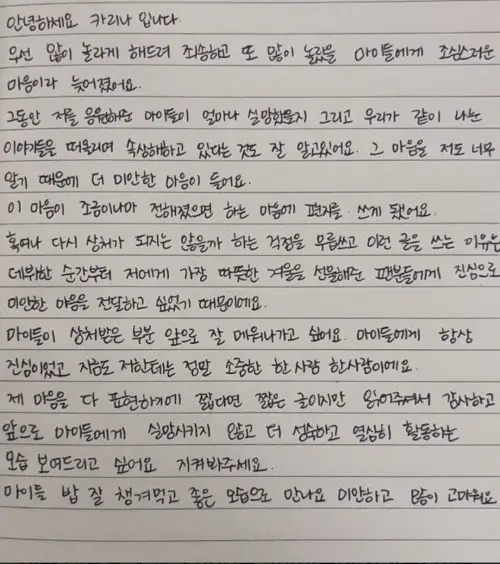 안녕하세요 카리나 입니다.
우선 많이 놀라게 해드려 죄송하고 또 많이 놀랐을 마이들에게 조심스러운
마음이라 늦어졌어요.
그동안 저를 응원해준 마이들이 얼마나 실망했을지 그리고 우리가 같이 나눈
이야기들을 떠올리며 속상해하고 있다는 것도 잘 알고있어요. 그 마음을 저도 너무
알기 때문에 더 미안한 마음이 들어요.
이 마음이 조금이나마 전해졌으면 하는 마음에 편지를 쓰게 됐어요.
혹여나 다시 상처가 되지는 않을까 하는 걱정을 무릅쓰고 이런 글을 쓰는 이유는
데뷔한 순간부터 저에게 가장 따뜻한 겨울을 선물해준 팬분들에게 진심으로
미안한 마음을 전달하고 싶었기 때문이에요.
마이들이 상처받은 부분 앞으로 잘 메워나가고 싶어요. 마이들에게 항상
진심이었고 지금도 저한테는 정말 소중한 한 사람 한사람이에요.
제 마음을 다 표현하기에 짧다면 짧은 글이지만 읽어주셔서 감사하고
앞으로 마이들에게 실망시키지 않고 더 성숙하고 열심히 활동하는
모습 보여드리고 싶어요 지켜봐주세요.
마이들 밥 잘 챙겨먹고 좋은 모습으로 만나요 미안하고 많이 고마워요